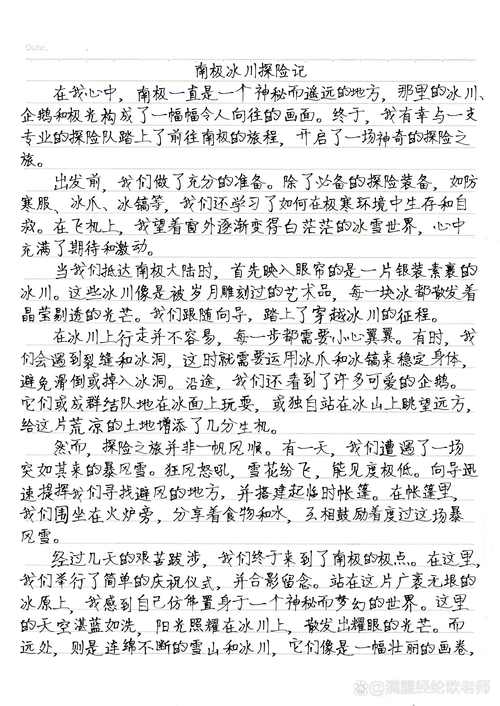 Date.
南极冰川探险记
在我心中，南极一直是一个神秘而遥远的地方，那里的冰川、
企鹅和极光构成了一幅幅令人向往的画面。终于，我有幸与一支
专业的探险队踏上了前往南极的旅程，开启了一场神奇的探险之
旅。
出发前，我们做了充分的准备。除了必备的探险装备，如防
寒服、冰爪、冰镐等，我们还学习了如何在极寒环境中生存和自
救。在飞机上，我望着窗外逐渐变得白茫茫的冰雪世界，心中
充满了期待和激动。
当我们抵达南极大陆时，首先映入眼帘的是一片银装素裹的
冰川。这些冰川像是被岁月雕刻过的艺术品，每一块冰都散发着
晶莹剔透的光芒。我们跟随向导，踏上了穿越冰川的征程。
在冰川上行走并不容易，每一步都需要小心翼翼。有时，我
们会遇到裂缝和冰洞，这时就需要运用冰爪和冰镐来稳定身体，
避免滑倒或掉入冰洞。沿途，我们还看到了许多可爱的企鹅。
它们或成群结队地在冰面上玩耍，或独自站在冰山上眺望远方，
给这片荒凉的土地增添了几分生机。
然而，探险之旅并非一帆风顺。有一天，我们遭遇了一场
突如其来的暴风雪。狂风怒吼，雪花纷飞，能见度极低。向导迅
速指挥我们寻找避风的地方，并搭建起临时帐篷。在帐篷里，
我们围坐在火炉旁，分享着食物和水，互相鼓励着度过这场暴
风雪。
经过几天的艰苦跋涉，我们终于来到了南极的极点。在这里，
我们举行了简单的庆祝仪式，并合影留念。站在这片广袤无垠的
冰原上，我感到自己仿佛置身于一个神秘而梦幻的世界。这里
的天空湛蓝如洗，阳光照耀在冰川上，散发出耀眼的光芒。而
远处，则是连绵不断的雪山和冰川，它们像是一幅壮丽的画卷，
@满腹经纶歌老师